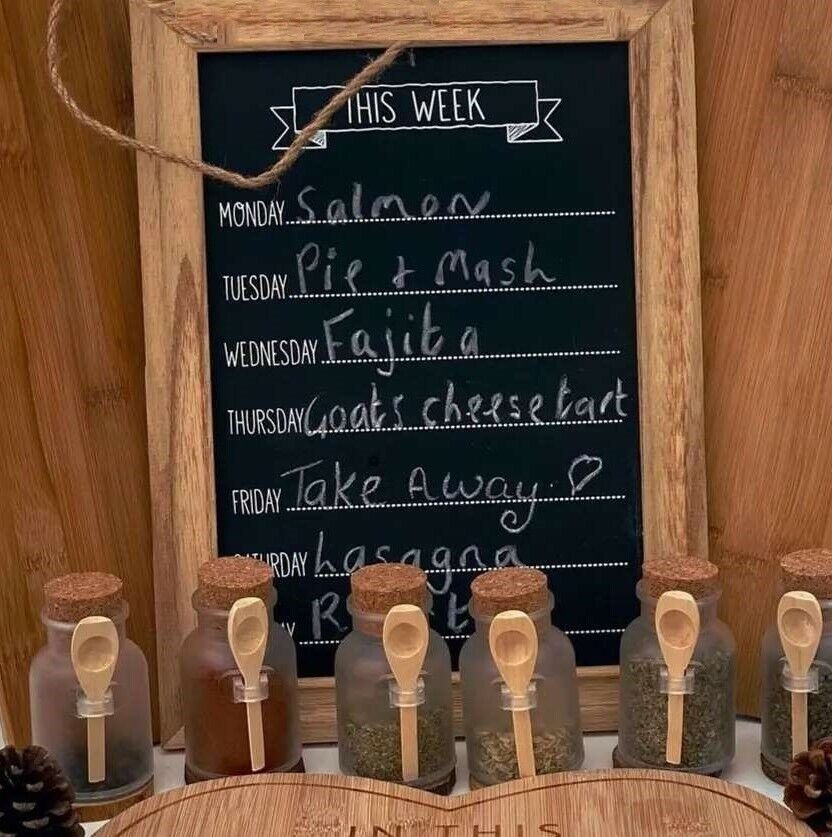 THIS WEEK
MONDAY Salmon
TUESDAY Pie + Mash
WEDNESDAY Fajita
THURSDAY Goats cheese tart
FRIDAY Take Away
Lasagna
IN THIS